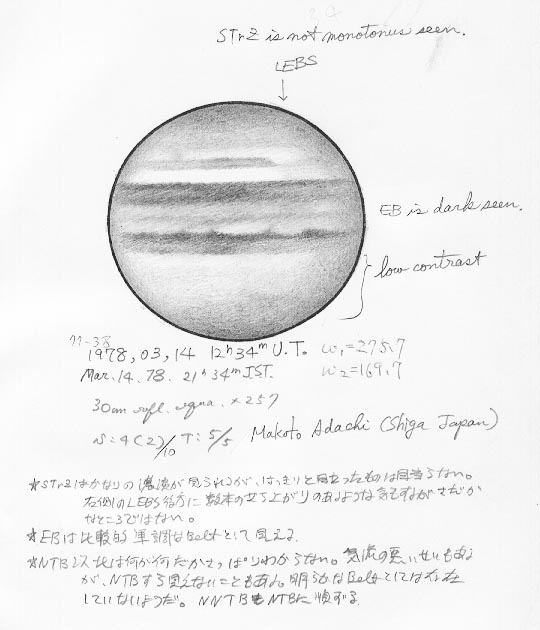 STrZ is not monotonus seen.
LEBS
EB is dark seen.
low contrast
77-38
1978, 03, 14 12h 34m U.T. ω1=275.7
Mar. 14. 78. 21h 34m JST. ω2=169.7
30cm refl. equa. ×257
S: 4(2)/10 T: 5/5 Makoto Adachi (Shiga Japan)
★STrZはかなりの濃淡が見られるが、はっきりと目立ったものは見当らない。
右側のLEBS後方に数本の立ち上がりのあるような気もするがさだか
なところではない。
★EBは比較的単調なBeltとして見える
★NTB以北は何が何だかさっぱりわからない。気流の悪いせいもある
が、NTBすら見えないこともある。明らかなBeltとしては存在
していないようだ。NNTBもNTBに順ずる